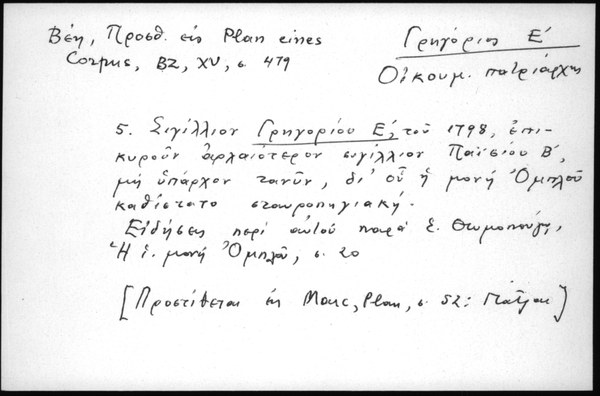 Βέη, Προσθ. εἰς Plan eines
Corpus, BZ, XV, σ. 479
Γρηγόριος Ε΄
Οἰκουμ. πατριάρχης
5. Σιγίλλιον Γρηγορίου Ε΄, τοῦ 1798, ἐπι-
κυροῦν ἀρχαιότερον σιγίλλιον Παϊσίου Β΄,
μὴ ὑπάρχον τανῦν, δι' οὗ ἡ μονή Ὀμπλοῦ
καθίστατο σταυροπηγιακή.
Εἰδήσεις περί αὐτοῦ παρά Σ. Θωμοπούλῳ,
Ἡ ἱ. μονή Ὀμπλοῦ, σ. 20
[Προστίθεται εἰς Marc, Plan, σ. 52: Πάτραι]